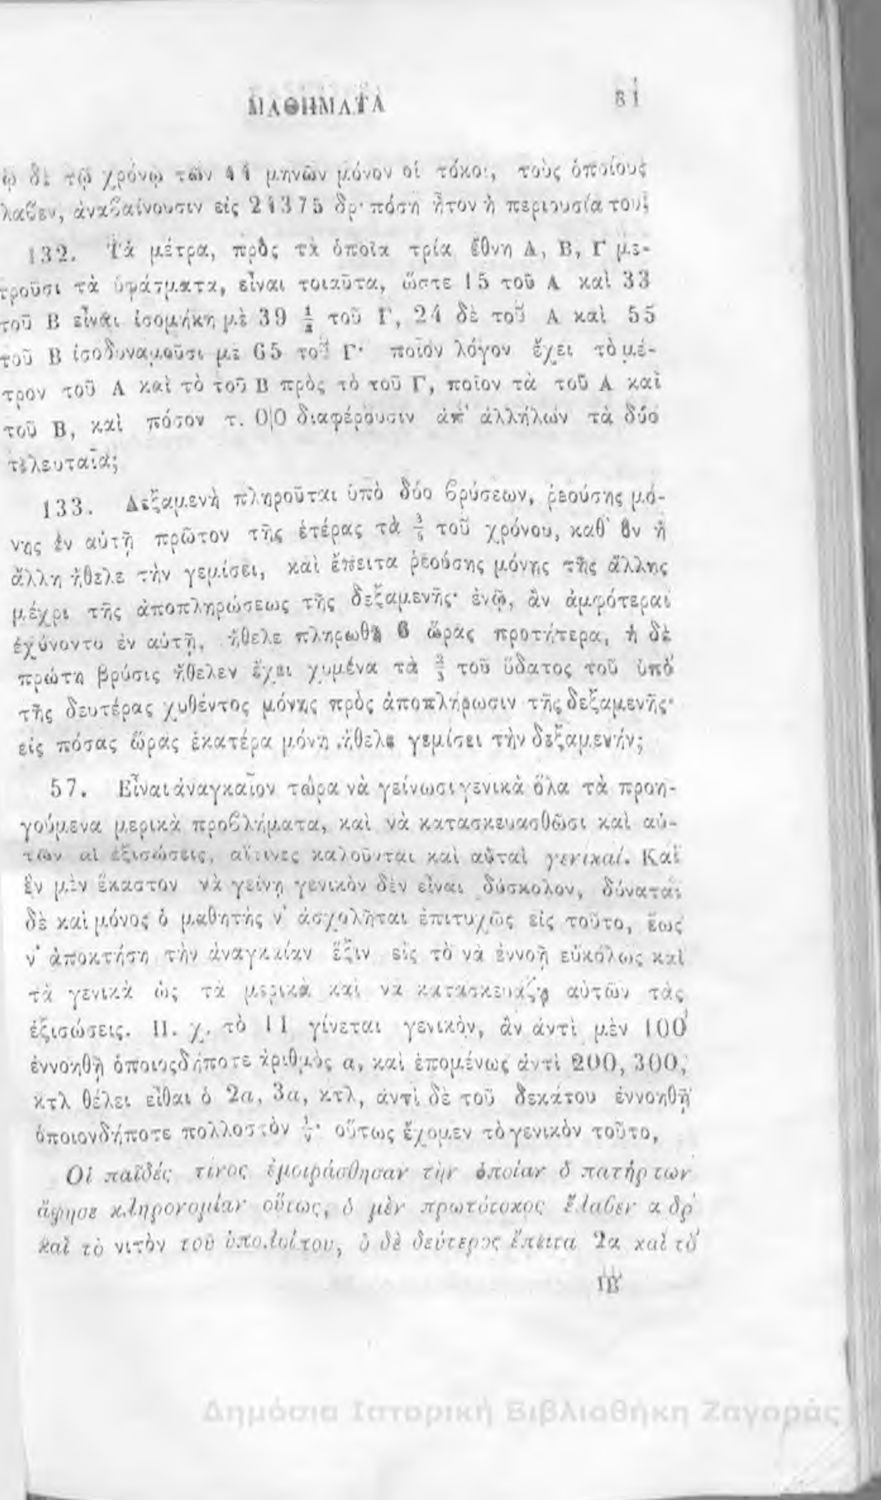 ΜΑΘΗΜΑΤΑ 81
ῳ δὲ τῷ χρόνῳ τῶν 44 μηνῶν μόνον οἱ τόκοι, τοὺς ὁποίους
λαβεν, ἀναβαίνουσιν εἰς 24375 δρ· πόση ἦτον ἡ περιουσία του;
132. Τὰ μέτρα, πρὸς τὰ ὁποῖα τρία ἔθνη Α, Β, Γ με-
τροῦσι τὰ ὑφάσματα, εἶναι τοιαῦτα, ὥστε 15 τοῦ Α καὶ 33
τοῦ Β εἶναι ἰσομήκη μὲ 39 ½ τοῦ Γ, 24 δὲ τοῦ Α καὶ 55
τοῦ Β ἰσοδυναμοῦσι μὲ 65 τοῦ Γ· ποῖον λόγον ἔχει τὸ μέ-
τρον τοῦ Α καὶ τὸ τοῦ Β πρὸς τὸ τοῦ Γ, ποῖον τὰ τοῦ Α καὶ
τοῦ Β, καὶ πόσον τ. 0|0 διαφέρουσιν ἀπ' ἀλλήλων τὰ δύο
τελευταῖα;
133. Δεξαμενὴ πληροῦται ὑπὸ δύο βρύσεων, ῥεούσης μό-
νης ἐν αὐτῇ πρῶτον τῆς ἑτέρας τὰ τοῦ χρόνου, καθ' ὃν ἡ
ἄλλη ἤθελε τὴν γεμίσει, καὶ ἔπειτα ῥεούσης μόνης τῆς ἄλλης
μέχρι τῆς ἀποπληρώσεως τῆς δεξαμενῆς· ἐνῷ, ἂν ἀμφότεραι
ἐχύνοντο ἐν αὐτῇ, ἤθελε πληρωθῆ 6 ὥρας προτήτερα, ἡ δὲ
πρώτη βρύσις ἤθελεν ἔχει χυμένα τὰ ⅔ τοῦ ὕδατος τοῦ ὑπὸ
τῆς δευτέρας χυθέντος μόνης πρὸς ἀποπλήρωσιν τῆς δεξαμενῆς·
εἰς πόσας ὥρας ἑκατέρα μόνη ἤθελε γεμίσει τὴν δεξαμενήν;
57. Εἶναι ἀναγκαῖον τώρα νὰ γείνωσι γενικὰ ὅλα τὰ προη-
γούμενα μερικὰ προβλήματα, καὶ νὰ κατασκευασθῶσι καὶ αὐ-
τῶν αἱ ἐξισώσεις, αἵτινες καλοῦνται καὶ αὗται γενικαί. Καὶ
ἓν μὲν ἕκαστον νὰ γείνῃ γενικὸν δὲν εἶναι δύσκολον, δύναται
δὲ καὶ μόνος ὁ μαθητὴς ν' ἀσχολῆται ἐπιτυχῶς εἰς τοῦτο, ἕως
ν' ἀποκτήσῃ τὴν ἀναγκαίαν ἕξιν εἰς τὸ νὰ ἐννοῇ εὐκόλως καὶ
τὰ γενικὰ ὡς τὰ μερικὰ καὶ νὰ κατασκευάζῃ αὐτῶν τὰς
ἐξισώσεις. Π. χ. τὸ 11 γίνεται γενικὸν, ἂν ἀντὶ μὲν 100
ἐννοηθῇ ὁποιοςδήποτε ἀριθμὸς α, καὶ ἑπομένως ἀντὶ 200, 300,
κτλ θέλει εἶθαι ὁ 2α, 3α, κτλ, ἀντὶ δὲ τοῦ δεκάτου ἐννοηθῇ
ὁποιονδήποτε πολλοστὸν οὕτως ἔχομεν τὸ γενικὸν τοῦτο,
Οἱ παῖδές τινος ἐμοιράσθησαν τὴν ὁποίαν ὁ πατήρ των
ἄφησε κληρονομίαν οὕτως, ὁ μὲν πρωτότοκος ἔλαβεν α δρ
καὶ τὸ νιτὸν τοῦ ὑπολοίπου, ὁ δὲ δεύτερος ἔπειτα 2α καὶ τὸ
Δημόσια Ιστορική Βιβλιοθήκη Ζαγοράς